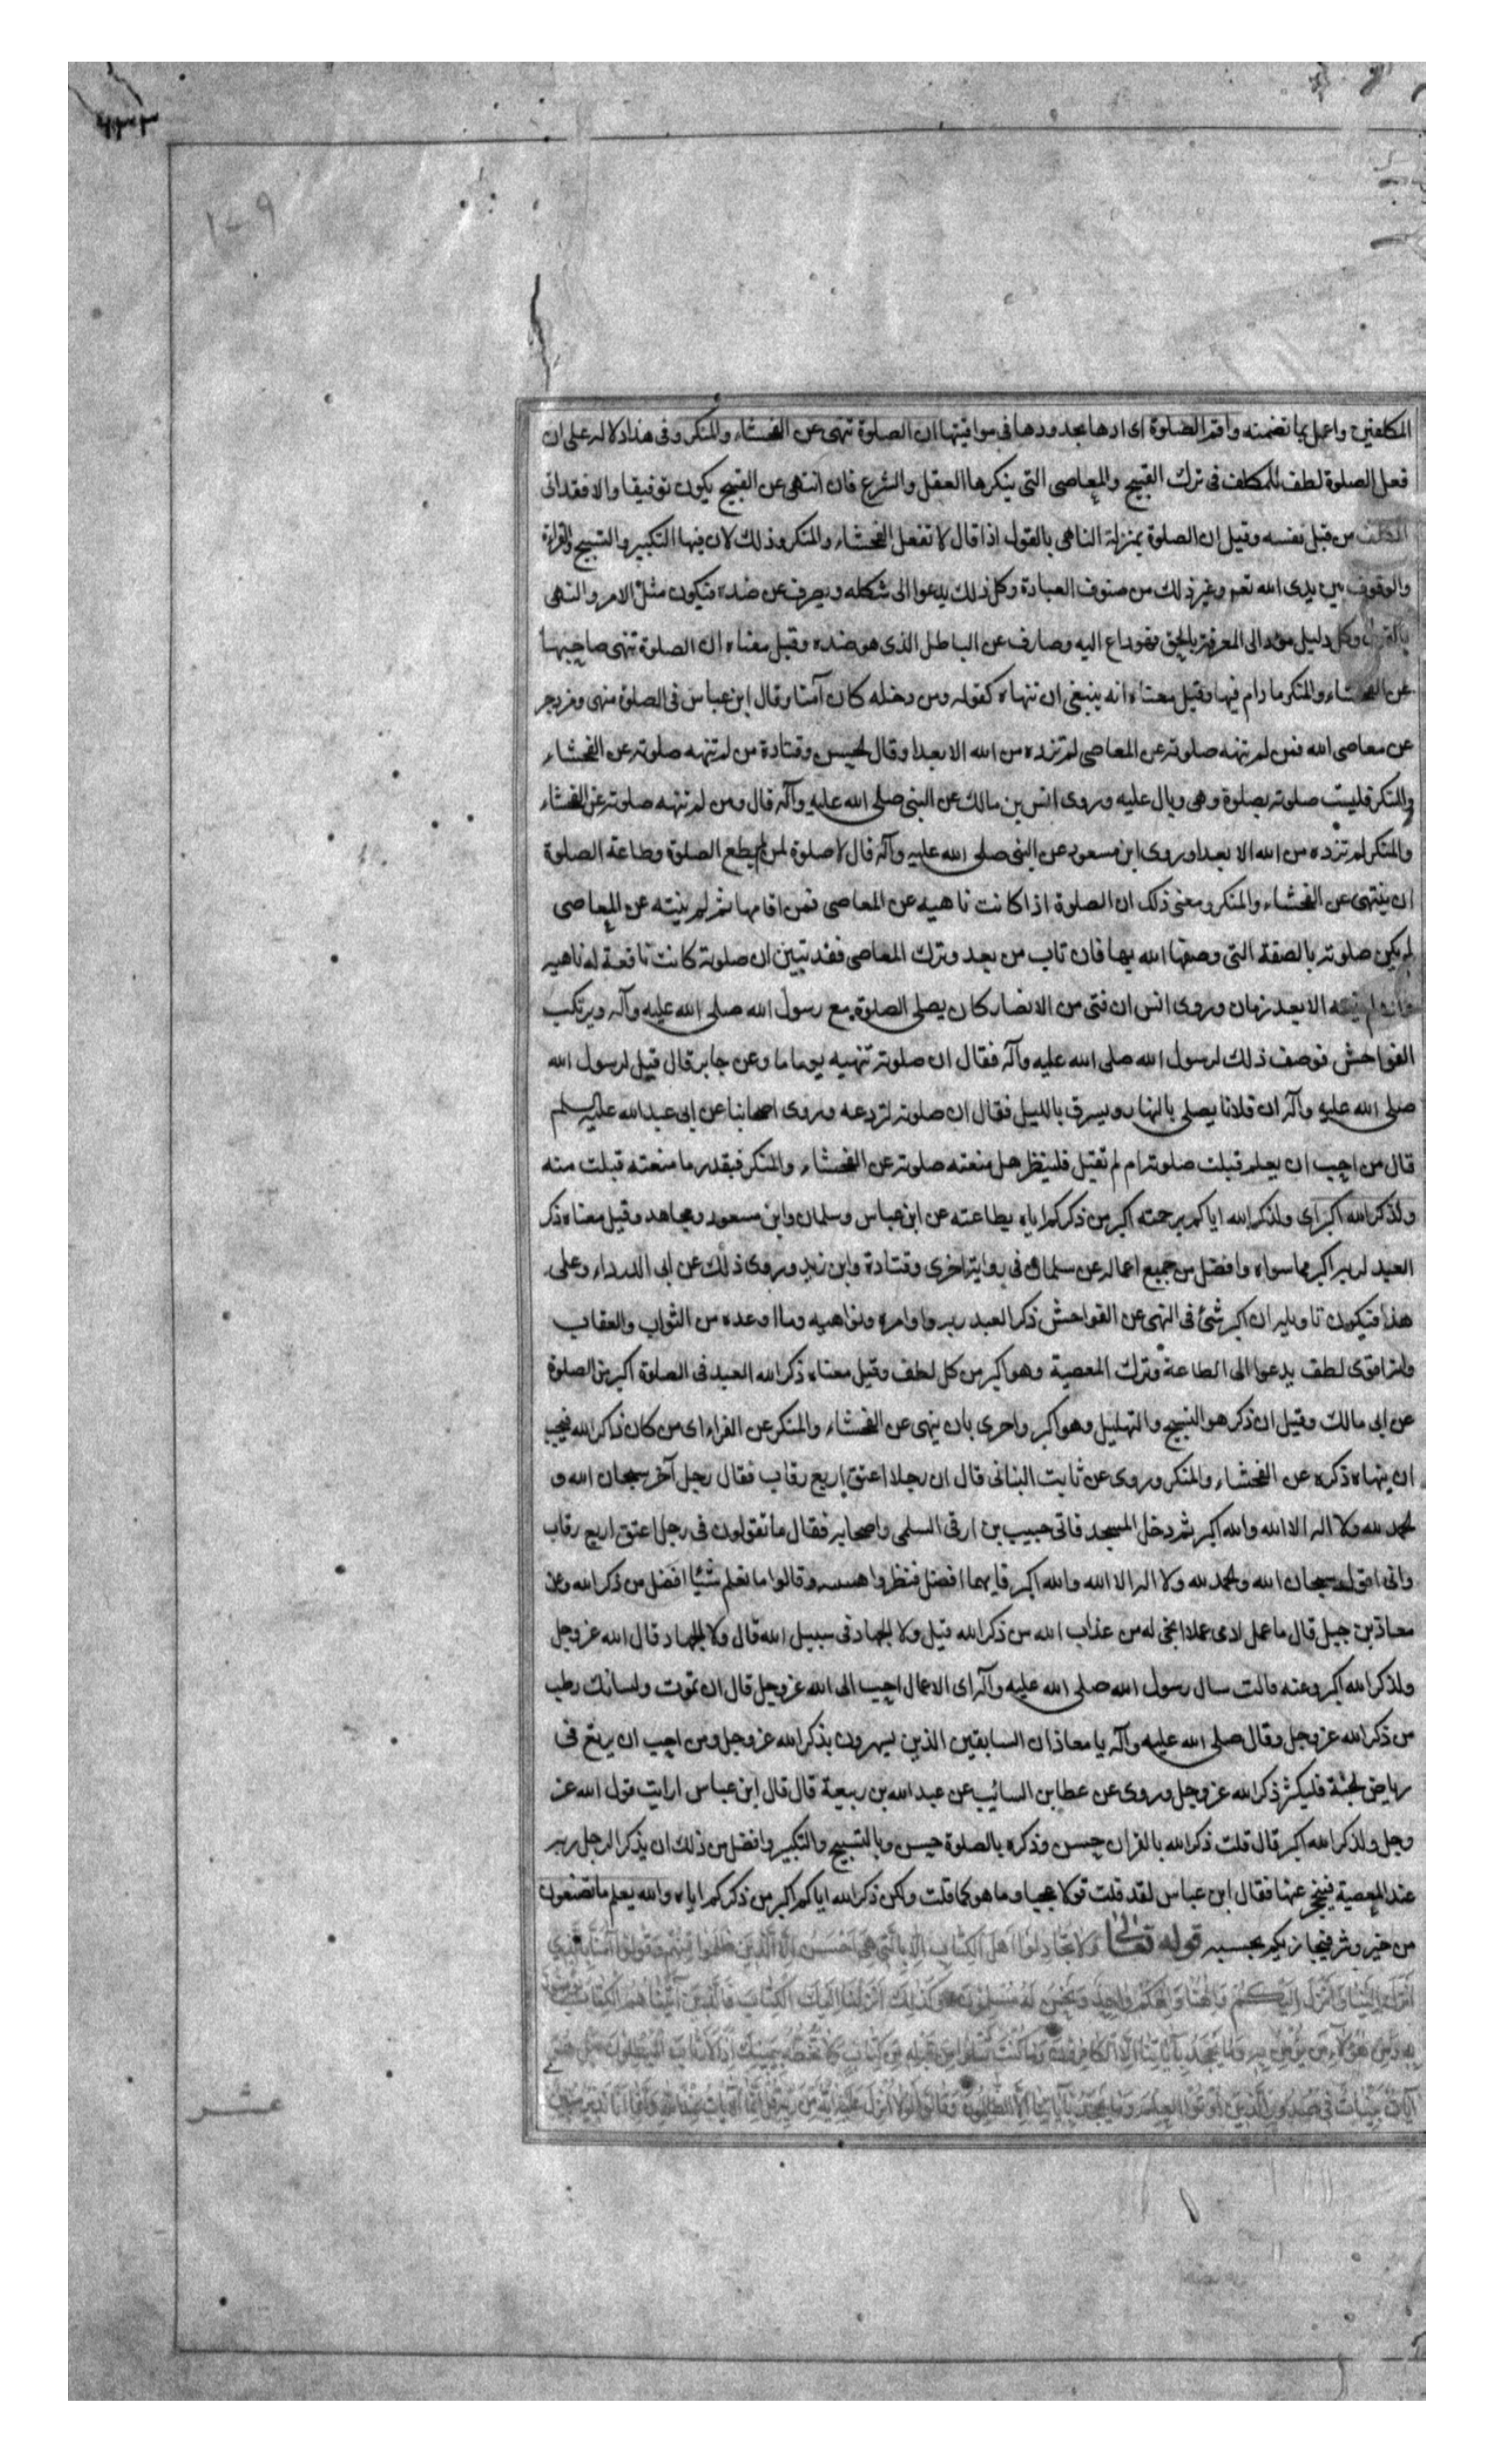 ٤٣٣
١٠٩
المكلفين واعمل بما تضمنه واقم الصلوة اى ادها بحدودها فى مواقيتها ان الصلوة تنهى عن الفحشاء والمنكر وفى هذا دلالة على ان
فعل الصلوة لطف للمكلف فى ترك القبيح والمعاصى التى ينكرها العقل والشرع فان انتهى عن القبيح يكون توفيقا والا فقد اتى
المكلف من قبل نفسه وقيل ان الصلوة بمنزلة الناهى بالقول اذا قال لا تفعل الفحشاء والمنكر وذلك لان فيها التكبير والتسبيح والقراءة
والوقوف بين يدى الله تعم وغير ذلك من صنوف العبادة وكل ذلك يدعوا الى شكله ويصرف عن ضده فيكون مثل الامر والنهى
بالقول وكل دليل مؤد الى المعرفة بالحق فهو داع اليه وصارف عن الباطل الذى هو ضده وقيل معناه ان الصلوة تنهى صاحبها
عن الفحشاء والمنكر ما دام فيها وقيل معناه انه ينبغى ان تنهاه كقوله ومن دخله كان آمنا وقال ابن عباس فى الصلوة منهى ومزدجر
عن معاصى الله فمن لم تنهه صلوته عن المعاصى لم تزده من الله الا بعدا وقال الحسن وقتادة من لم تنهه صلوته عن الفحشاء
والمنكر فليست صلوته بصلوة وهى وبال عليه وروى انس بن مالك عن النبى صلى الله عليه وآله قال ومن لم تنهه صلوته عن الفحشاء
والمنكر لم تزده من الله الا بعدا وروى ابن مسعود عن النبى صلى الله عليه وآله قال لا صلوة لمن لم يطع الصلوة وطاعة الصلوة
ان ينتهى عن الفحشاء والمنكر ومعنى ذلك ان الصلوة اذا كانت ناهيه عن المعاصى فمن اقامها ثم لم ينته عن المعاصى
لم يكن صلوته بالصفة التى وصفها الله بها فان تاب من بعد وترك المعاصى فقد تبين ان صلوته كانت نافعة له ناهيه
وان لم ينته الا بعد زمان وروى انس ان فتى من الانصار كان يصلى الصلوة مع رسول الله صلى الله عليه وآله ويرتكب
الفواحش فوصف ذلك لرسول الله صلى الله عليه وآله فقال ان صلوته تنهيه يوما ما وعن جابر قال قيل لرسول الله
صلى الله عليه وآله ان فلانا يصلى بالنهار ويسرق بالليل فقال ان صلوته لتردعه وروى اصحابنا عن ابى عبد الله عليه السلم
قال من احب ان يعلم قبلت صلوته ام لم تقبل فلينظر هل منعته صلوته عن الفحشاء والمنكر فبقدر ما منعته قبلت منه
ولذكر الله اكبر اى ولذكر الله اياكم برحمته اكبر من ذكركم اياه بطاعته عن ابن عباس وسلمان وابن مسعود ومجاهد وقيل معناه ذكر
العبد لربه اكبر مما سواه وافضل من جميع اعماله عن سلمان فى رواية اخرى وقتادة وابن زيد وروى ذلك عن ابى الدرداء وعلى
هذا فيكون تاويله ان اكبر شئ فى النهى عن الفواحش ذكر العبد ربه واوامره ونواهيه وما اوعده من الثواب والعقاب
وانه اقوى لطف يدعوا الى الطاعة وترك المعصية وهو اكبر من كل لطف وقيل معناه ذكر الله العبد فى الصلوة اكبر من الصلوة
عن ابى مالك وقيل ان ذكر هو التسبيح والتهليل وهو اكبر واحرى بان ينهى عن الفحشاء والمنكر عن الفراء اى من كان ذاكر الله فيجب
ان ينهاه ذكره عن الفحشاء والمنكر وروى عن ثابت البنانى قال ان رجلا اعتق اربع رقاب فقال رجل آخر سبحان الله و
الحمد لله ولا اله الا الله والله اكبر ثم دخل المسجد فاتى حبيب بن ارقى السلمى واصحابه فقال ما تقولون فى رجل اعتق اربع رقاب
وانى اقول سبحان الله والحمد لله ولا اله الا الله والله اكبر فايهما افضل فنظروا وقالوا ما نعلم شيئا افضل من ذكر الله وعن
معاذ بن جبل قال ما عمل ادمى عملا انجى له من عذاب الله من ذكر الله قيل ولا الجهاد فى سبيل الله قال ولا الجهاد قال الله عز وجل
ولذكر الله اكبر وعنه قالت سال رسول الله صلى الله عليه وآله اى الاعمال احب الى الله عز وجل قال ان تموت ولسانك رطب
من ذكر الله عز وجل وقال صلى الله عليه وآله يا معاذ ان السابقين الذين يسهرون بذكر الله عز وجل ومن احب ان يرتع فى
رياض الجنة فليكثر ذكر الله عز وجل وروى عن عطا بن السائب عن عبد الله بن ربيعة قال قال ابن عباس ارايت قول الله عز
وجل ولذكر الله اكبر قال قلت ذكر الله بالقران حسن وذكره بالصلوة حسن وبالتسبيح والتكبير وافضل من ذلك ان يذكر الرجل ربه
عند المعصية فينحجز عنها فقال ابن عباس لقد قلت قولا عجبا وما هو كما قلت ولكن ذكر الله اياكم اكبر من ذكركم اياه والله يعلم ما تصنعون
من خير وشر فيجازيكم بحسبه قوله تعالى وَلَا تُجَادِلُوا أَهْلَ الْكِتَابِ إِلَّا بِالَّتِي هِيَ أَحْسَنُ إِلَّا الَّذِينَ ظَلَمُوا مِنْهُمْ وَقُولُوا آمَنَّا بِالَّذِي
أُنْزِلَ إِلَيْنَا وَأُنْزِلَ إِلَيْكُمْ وَإِلَهُنَا وَإِلَهُكُمْ وَاحِدٌ وَنَحْنُ لَهُ مُسْلِمُونَ وَكَذَلِكَ أَنْزَلْنَا إِلَيْكَ الْكِتَابَ فَالَّذِينَ آتَيْنَاهُمُ الْكِتَابَ يُؤْمِنُونَ
بِهِ وَمِنْ هَؤُلَاءِ مَنْ يُؤْمِنُ بِهِ وَمَا يَجْحَدُ بِآيَاتِنَا إِلَّا الْكَافِرُونَ وَمَا كُنْتَ تَتْلُو مِنْ قَبْلِهِ مِنْ كِتَابٍ وَلَا تَخُطُّهُ بِيَمِينِكَ إِذًا لَارْتَابَ الْمُبْطِلُونَ بَلْ هُوَ
آيَاتٌ بَيِّنَاتٌ فِي صُدُورِ الَّذِينَ أُوتُوا الْعِلْمَ وَمَا يَجْحَدُ بِآيَاتِنَا إِلَّا الظَّالِمُونَ وَقَالُوا لَوْلَا أُنْزِلَ عَلَيْهِ آيَةٌ مِنْ رَبِّهِ قُلْ إِنَّمَا الْآيَاتُ عِنْدَ اللَّهِ وَإِنَّمَا أَنَا نَذِيرٌ مُبِينٌ
عشر